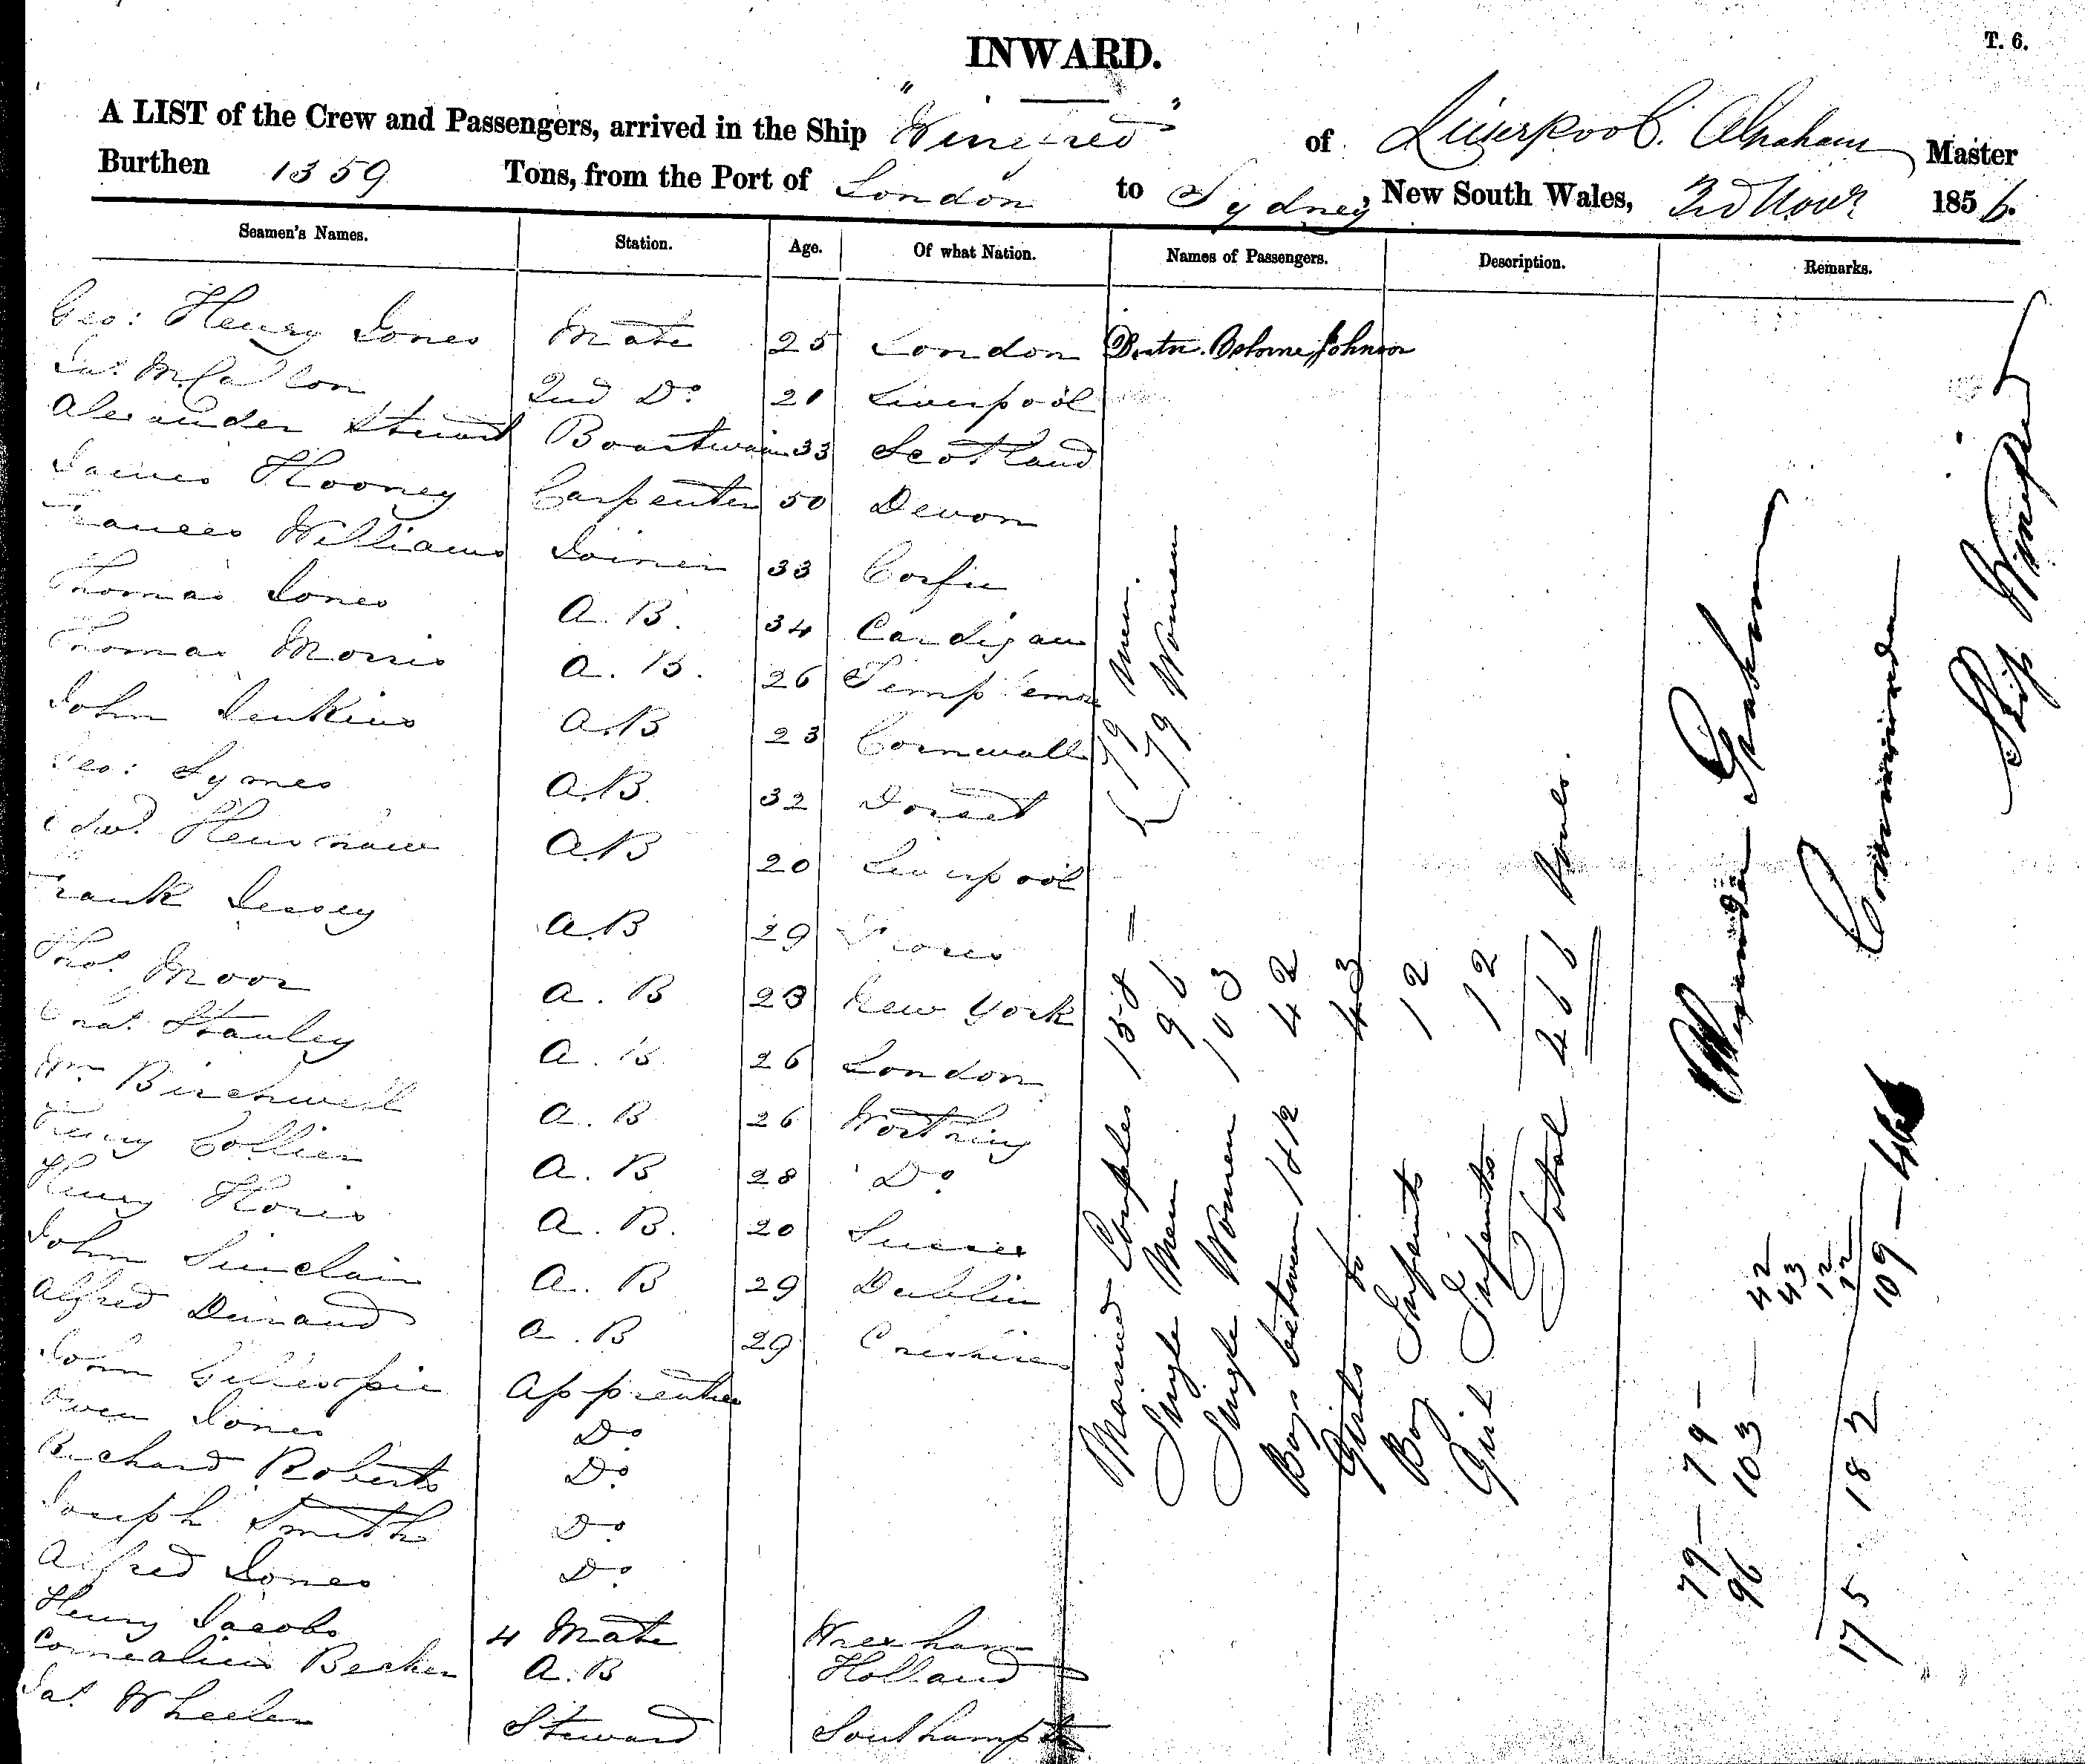 INWARD.
T. 6.
A LIST of the Crew and Passengers, arrived in the Ship "Winefred" of Liverpool. Graham Master
Burthen 1359 Tons, from the Port of London to Sydney, New South Wales, 3rd Novr 1856.
Seamen's Names. Station. Age. Of what Nation. Names of Passengers. Description. Remarks.
Geo: Henry Jones Mate 25 London Osborne Johnson
Jas. 2nd Do. 21 Liverpool
Alexander Stewart Boastwain 33 Scotland
James Hooney Carpenter 50 Devon
Frances Williams Joiner 33 Corfu
Thomas Jones A. B. 34 Cardigan
Thomas Morris A. B. 26 Templemore
John Jenkins A.B 23 Cornwall
Geo: Symes A.B. 32 Dorset
Edwd. Henshaw A.B 20 Liverpool
Frank A.B 29
Thos. Moor A. B 23 New York
Chas. Stanley A. B. 26 London
Wm Birchwell A. B 26 Worthing
Henry Collier A. B 28 Do
Henry A. B. 20 Sussex
John Sinclair A. B 29 Dublin
Alfred Durand A. B 29 Cheshire
John Gillespie Apprentice
Owen Jones Do
Richard Roberts Do
Joseph Smith Do
Alfred Jones Do
Henry Jacobs 4 Mate Wrexham
Cornealius Becker A. B Holland
Jas. Wheeler Steward Southampton
79 Men.
79 Women
Married Couples 158 =
Single Men 96
Single Women 103
Boys between 1 & 12 42
Girls Do 43
Boy Infants 12
Girl Infants 12
Total 466 Souls.
Alexander Graham
Commander
Ship Winefred
79 — 79 —
96 103 — 42
43
12
12
175 . 182 109 — 466